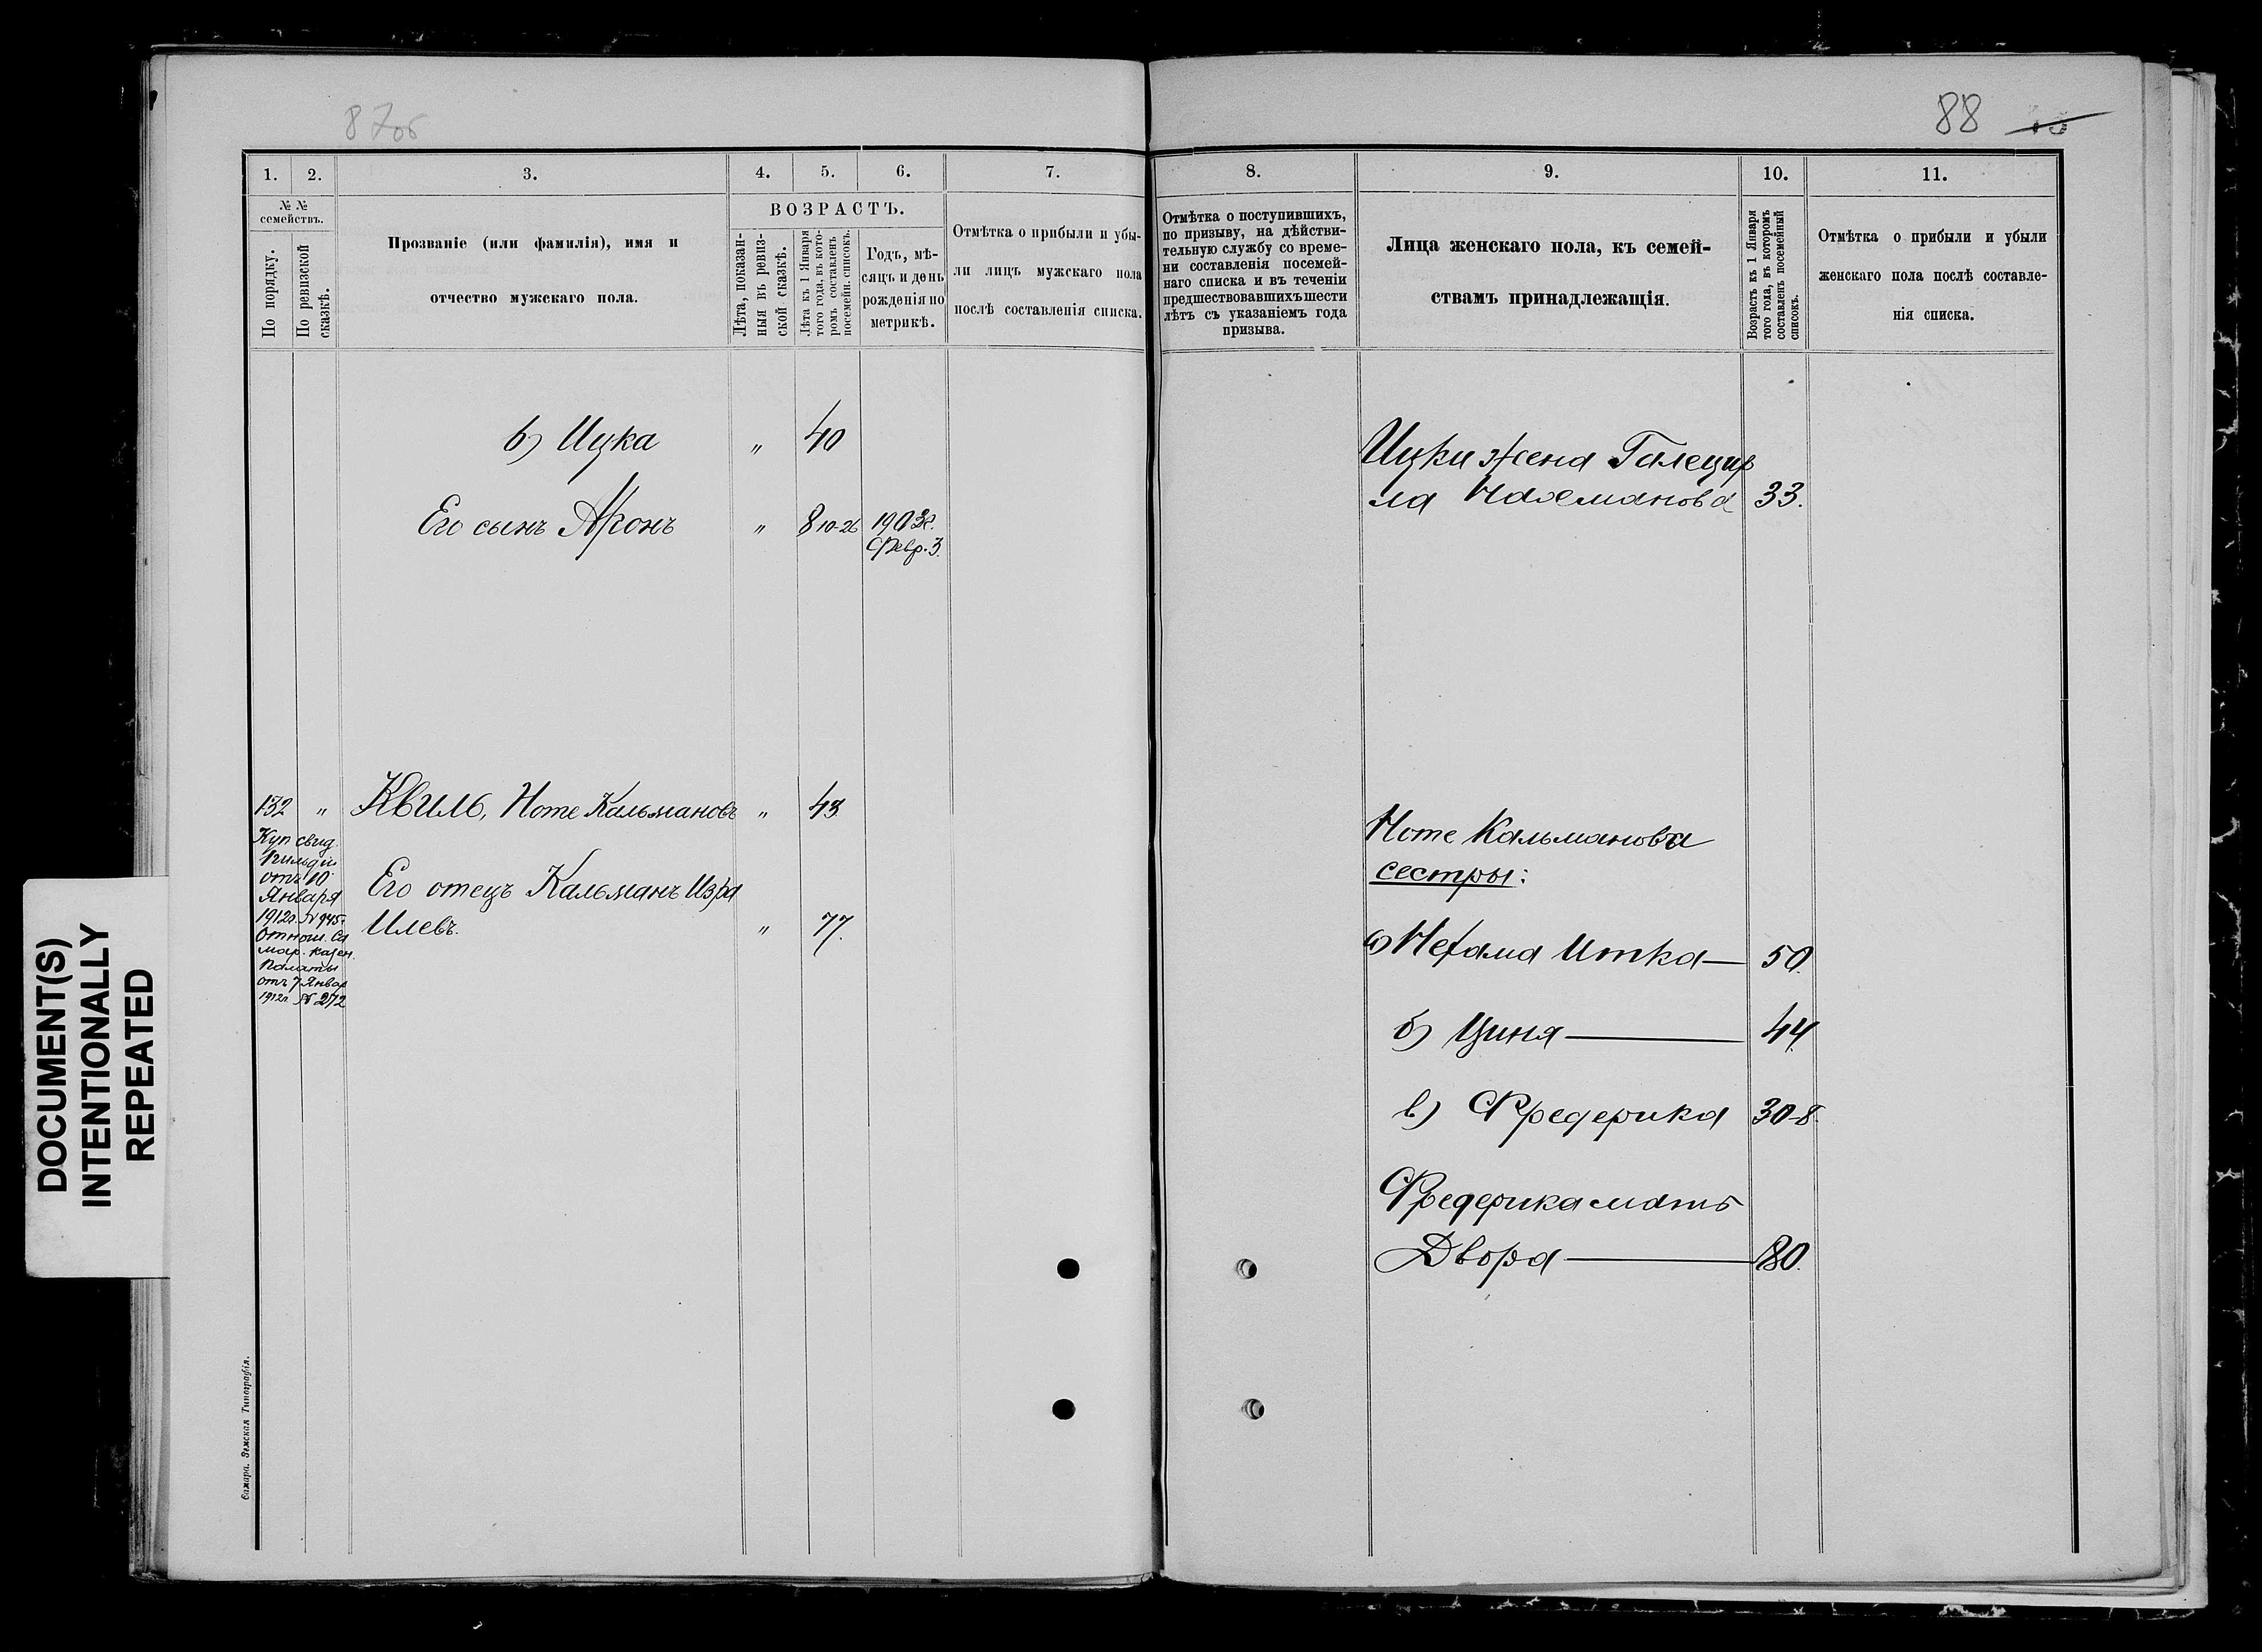 87об
88
1. 2. 3. 4. 5. 6. 7.
№ №
семействъ.
По порядку.
По ревизской
сказкѣ.
Прозваніе (или фамилія), имя и
отчество мужскаго пола.
ВОЗРАСТЪ.
Лѣта, показан-
ныя въ ревиз-
ской сказкѣ.
Лѣта къ 1 Января
того года, въ кото-
ромъ составленъ
посемейн. списокъ.
Годъ, мѣ-
сяцъ и день
рожденія по
метрикѣ.
Отмѣтка о прибыли и убы-
ли лицъ мужскаго пола
послѣ составленія списка.
в) Ицка " 40
Его сынъ Аронъ " 8 10-26 1903г.
Февр. 3.
132 " Квиль, Ноте Кальмановъ " 43
Куп свид.
гильдіи
отъ 10
Января
1912г. № 945
Отнош. Са
мар. Казен.
Палаты
отъ 7 Январ
1912г. № 272
Его отецъ Кальманъ Изра
илевъ. " 77.
Самара. Земская Типографія.
8. 9. 10. 11.
Отмѣтка о поступившихъ,
по призыву, на дѣйстви-
тельную службу со време-
ни составленія посемей-
наго списка и въ теченіи
предшествовавшихъ шести
лѣтъ съ указаніемъ года
призыва.
Лица женскаго пола, къ семей-
ствамъ принадлежащія.
Возрастъ къ 1 Января
того года, въ которомъ
составленъ посемейный
списокъ.
Отмѣтка о прибыли и убыли
женскаго пола послѣ составле-
нія списка.
Ицки жена
ла 33.
Ноте Кальманова
сестры:
а) Нехама Итка— 50.
б) Циня— 44.
в) Фредерика 30-8.
Фредерика мать
Двора— 80.
DOCUMENT(S)
INTENTIONALLY
REPEATED